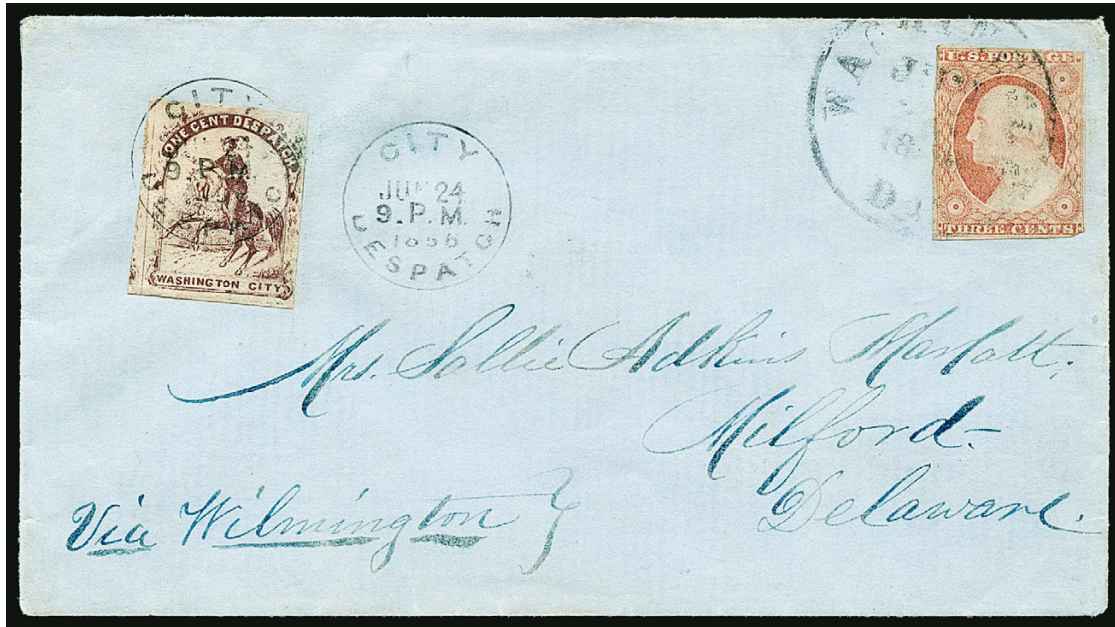 CITY
ONE CENT DESPATCH
9. P.M.
WASHINGTON CITY
CITY
JUN 24
9. P.M.
1856
DESPATCH
WASHIN
18
D
U.S. POSTAGE
THREE CENTS
Mrs. Sallie Adkins Marlatt,
Milford-
Delaware.
Via Wilmington